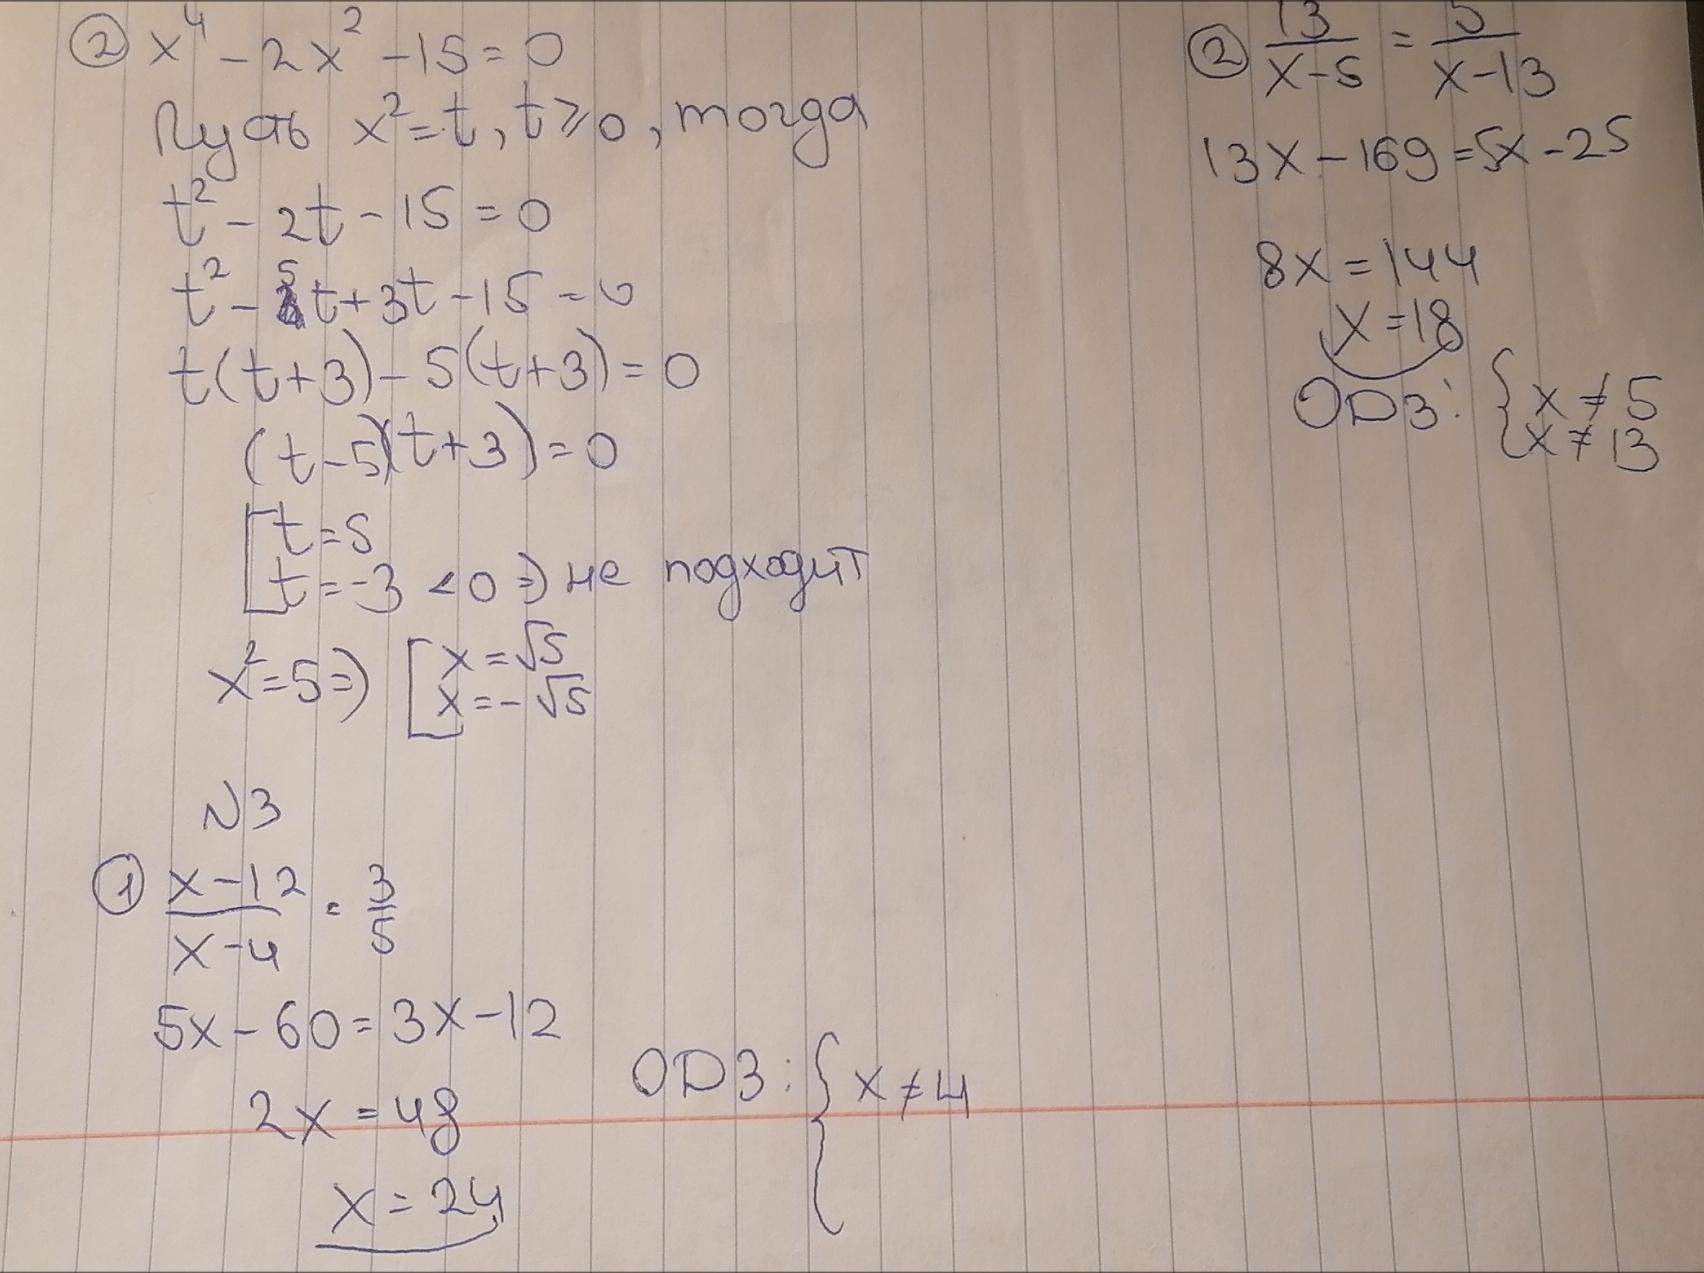 ② x⁴ - 2x² - 15 = 0
Пусть x² = t, t ⩾ 0, тогда
t² - 2t - 15 = 0
t² - 5t + 3t - 15 = 0
t(t+3) - 5(t+3) = 0
(t-5)(t+3) = 0
[ t = 5
t = -3 < 0 ⇒ не подходит
x² = 5 ⇒ [ x = √5
x = -√5
N3
① (x-12)/(x-4) = 3/5
5x - 60 = 3x - 12
2x = 48
x = 24
ОDЗ: { x ≠ 4
② 13/(x-5) = 5/(x-13)
13x - 169 = 5x - 25
8x = 144
x = 18
ОDЗ: { x ≠ 5
x ≠ 13